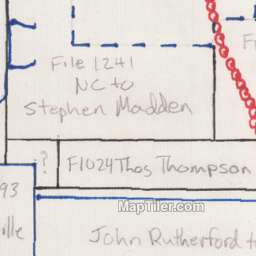 File 1241
NC to
Stephen Madden
?
F1024 Thos Thompson
93
ville
MapTiler.com
John Rutherford t